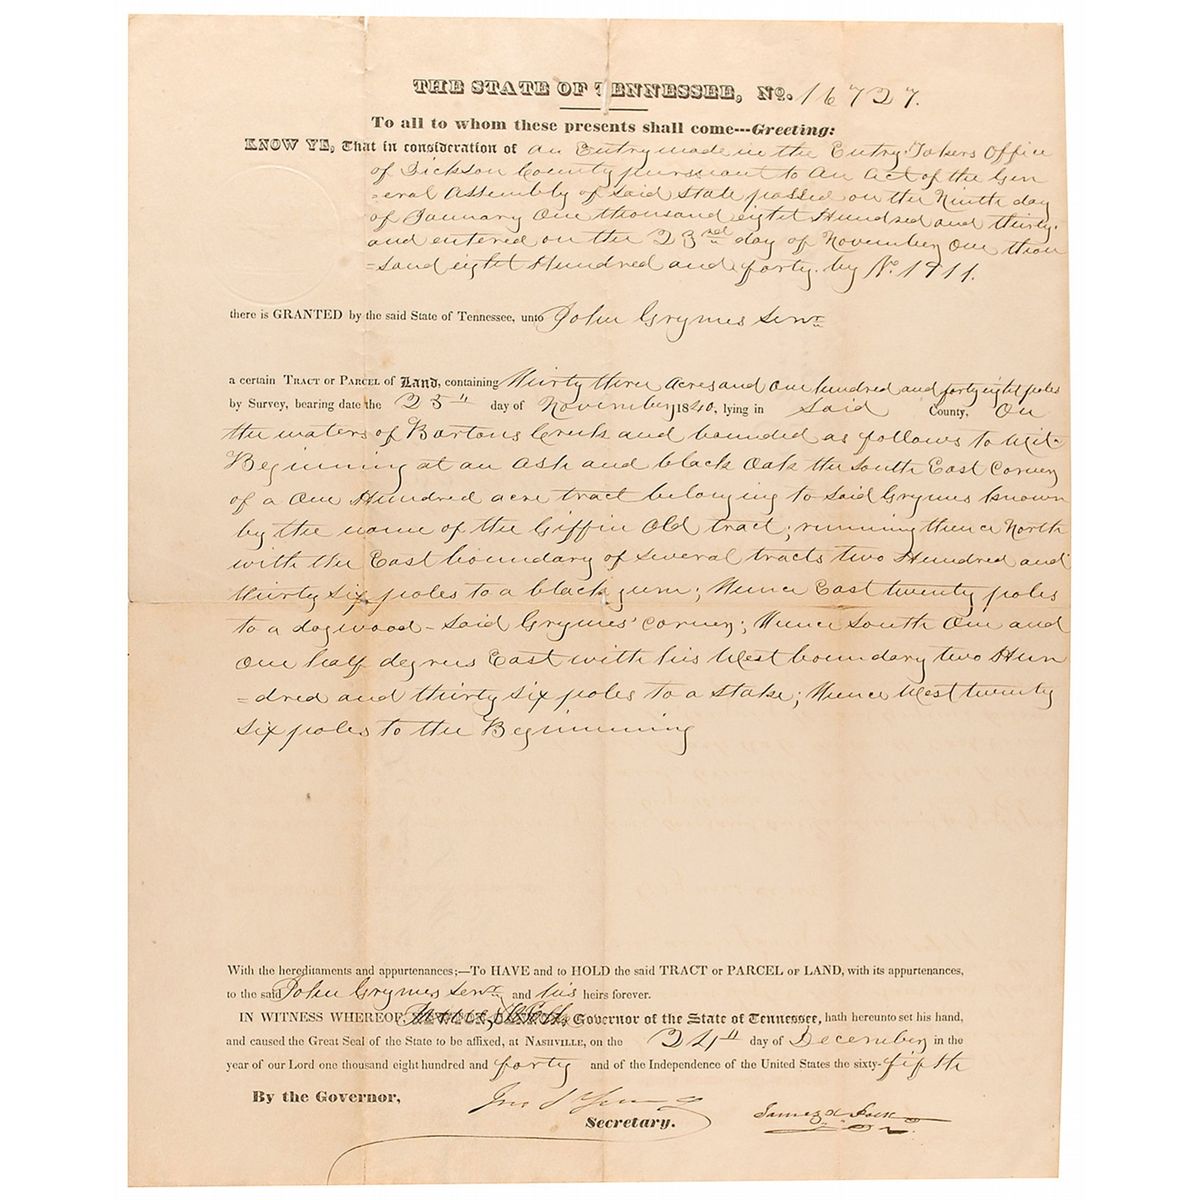 THE STATE OF TENNESSEE, No. 16727.
To all to whom these presents shall come---Greeting:
KNOW YE, That in consideration of an Entry made in the Entry Takers Office
of Dickson County pursuant to an Act of the Gen
=eral Assembly of said State passed on the Ninth day
of January One thousand eight Hundred and thirty.
and entered on the 23rd day of November One thou
=sand eight Hundred and forty. by No. 1911.
there is GRANTED by the said State of Tennessee, unto John Grymes Senr
a certain TRACT or PARCEL of Land, containing Thirty three Acres and One hundred and forty eight poles
by Survey, bearing date the 25th day of November 1840, lying in Said County, On
the waters of Bartons Creek and bounded as follows to wit-
Beginning at an Ash and black Oak the South East Corner
of a One Hundred acre tract belonging to Said Grymes known
by the name of the Giffin Old tract; running thence North
with the East boundary of several tracts two Hundred and
thirty Six poles to a black gum; thence East twenty poles
to a dogwood - Said Grymes' Corner; thence South One and
One half degrees East with his West boundary two Hun
=dred and thirty six poles to a stake; thence West twenty
Six poles to the Beginning
With the hereditaments and appurtenances;—To HAVE and to HOLD the said TRACT or PARCEL OF LAND, with its appurtenances,
to the said John Grymes Senr and his heirs forever.
IN WITNESS WHEREOF, Governor of the State of Tennessee, hath hereunto set his hand,
and caused the Great Seal of the State to be affixed, at NASHVILLE, on the 24th day of December in the
year of our Lord one thousand eight hundred and forty and of the Independence of the United States the sixty-fifth
By the Governor,
Jno S Young
Secretary.
James K Polk